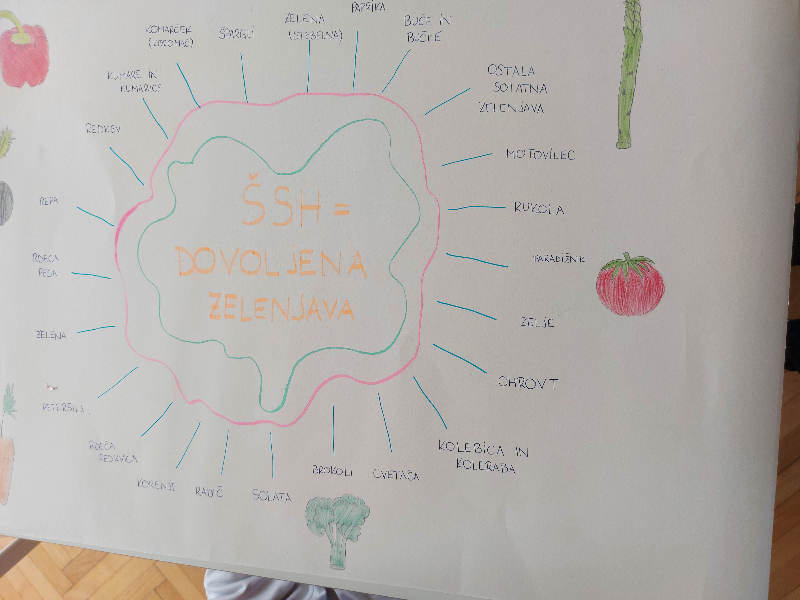 ŠSH =
DOVOLJENA
ZELENJAVA
PAPRIKA
BUČE IN
BUČKE
OSTALA
SOLATNA
ZELENJAVA
MOTOVILEC
RUKOLA
PARADIŽNIK
ZELJE
OHROVT
KOLEBICA IN
KOLERABA
CVETAČA
BROKOLI
SOLATA
RADIČ
KORENJE
RDEČA
REDKVICA
PETERŠILJ
ZELENA
RDEČA
PESA
REPA
REDKEV
KUMARE IN
KUMARICE
KOMARČEK
ŠPARGLJI
ZELENA
(STEBELNA)